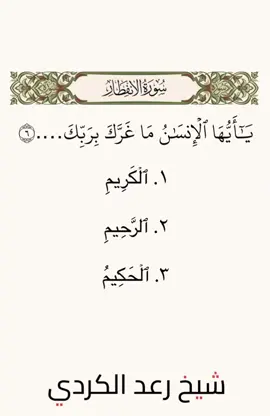 سُورَةُ الانفِطَار
يَـٰٓأَيُّهَا ٱلْإِنسَـٰنُ مَا غَرَّكَ بِرَبِّكَ.... ٦
١. ٱلْكَرِيمِ
٢. ٱلرَّحِيمِ
٣. ٱلْحَكِيمُ
شيخ رعد الكردي